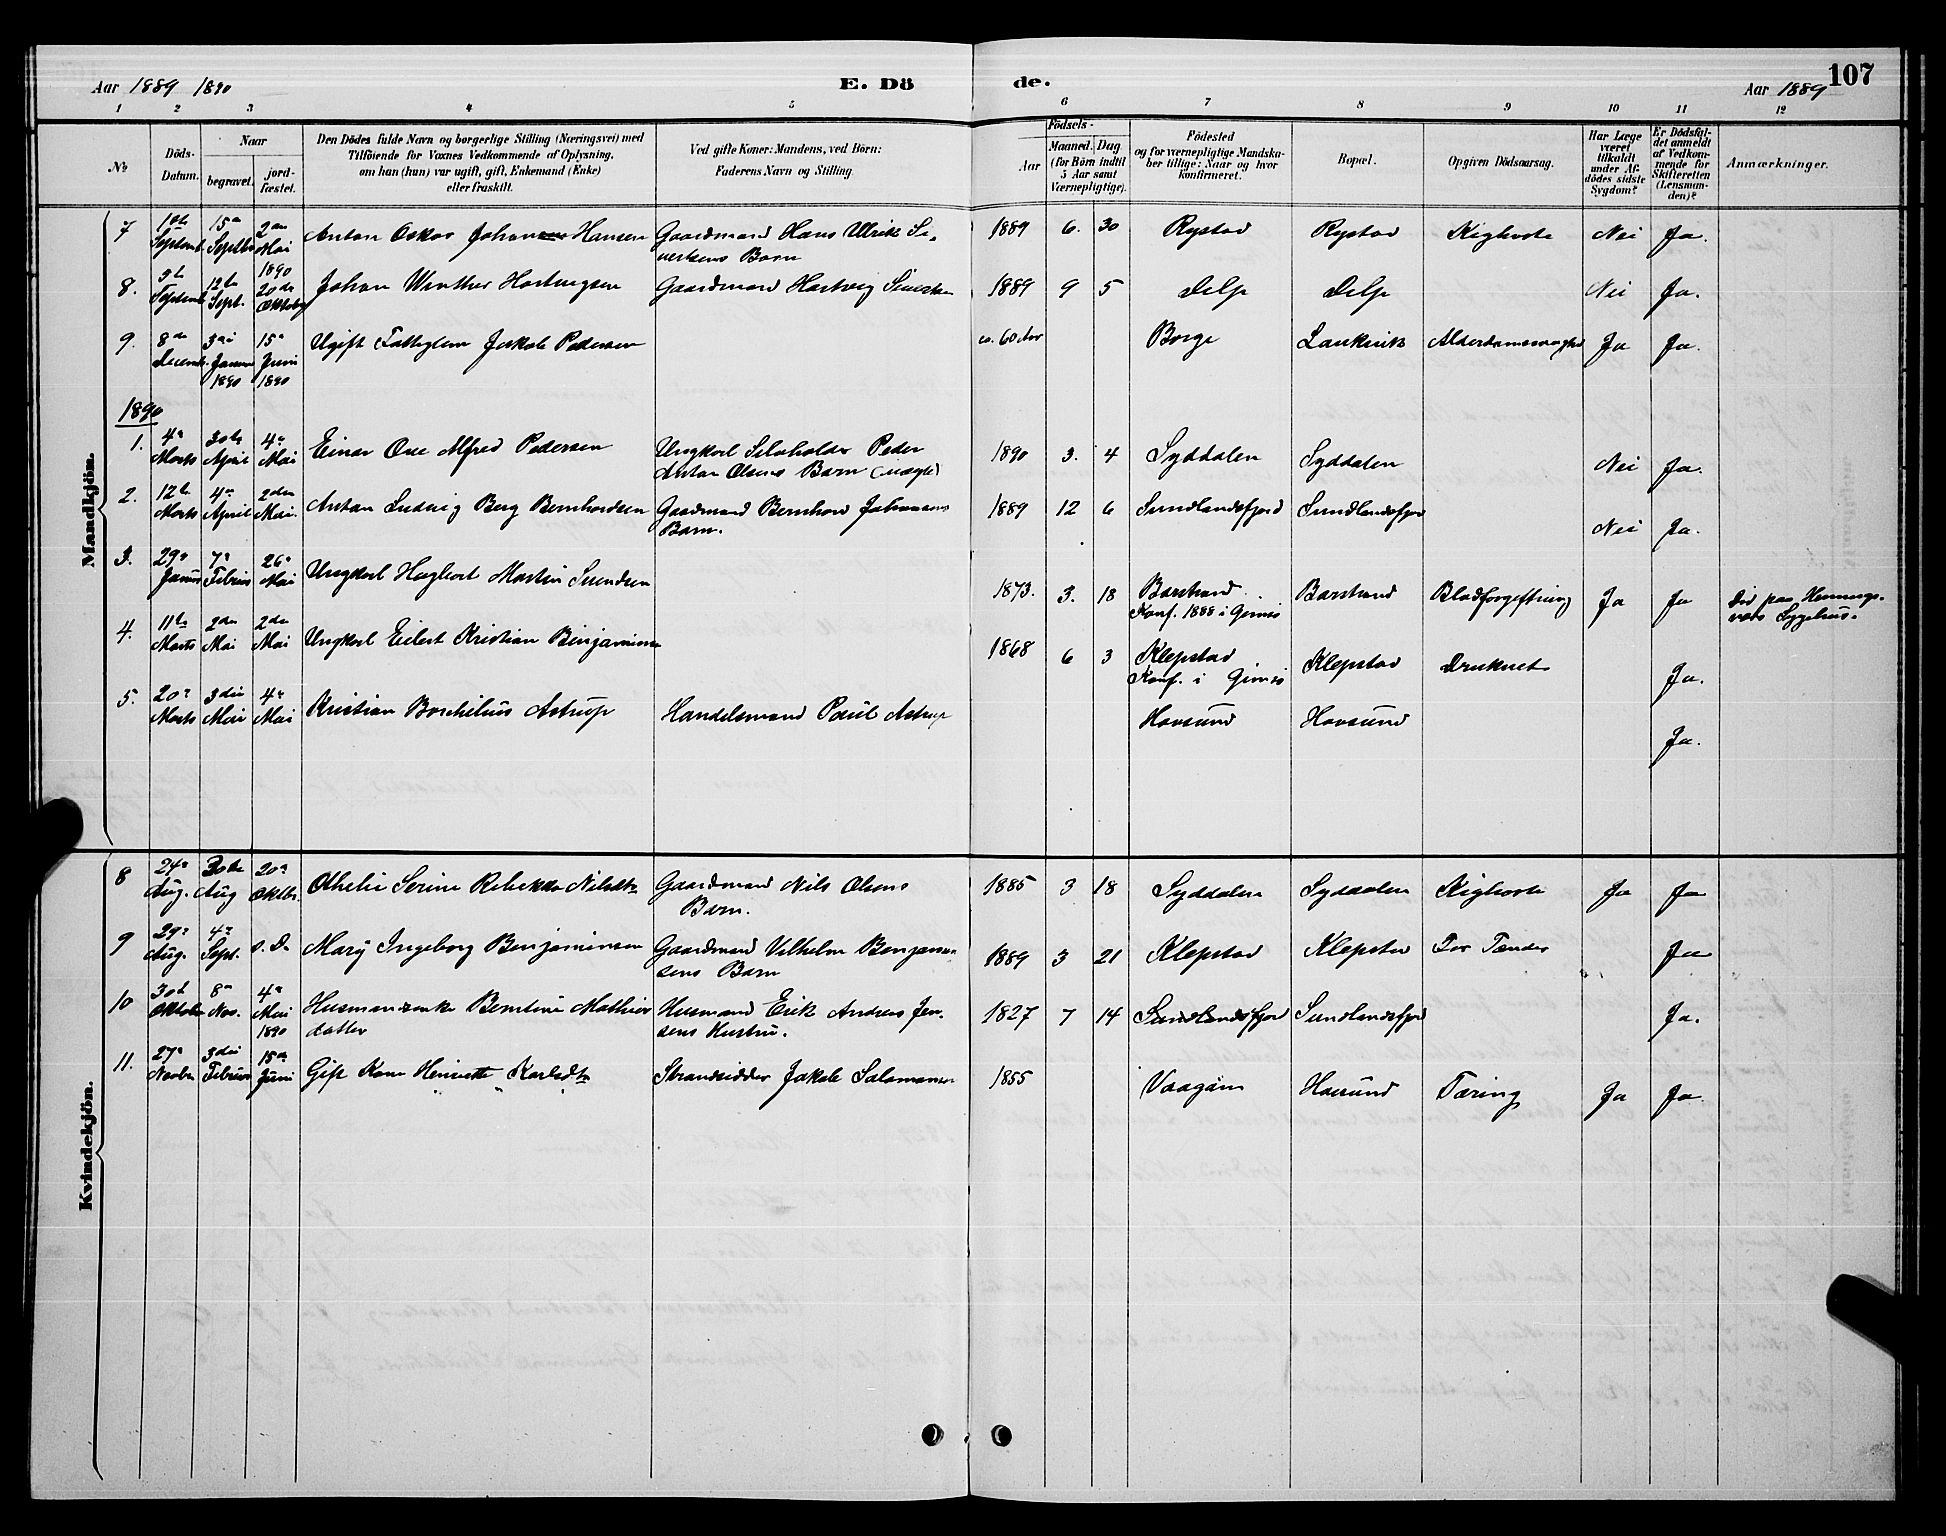 Aar 1889 1890
E. Dö
de.
Aar 1889
107
1 2 3 4 5 6 7 8 9 10 11 12
No
Döds-Datum.
Naar
begravet.
jord-fæstet.
Den Dödes fulde Navn og borgerlige Stilling (Næringsvei) med
Tilföiende for Voxnes Vedkommende af Oplysning,
om han (hun) var ugift, gift, Enkemand (Enke)
eller fraskilt.
Ved gifte Koner: Mandens, ved Börn:
Faderens Navn og Stilling.
Födsels-
Aar
Maaned. Dag
(for Börn indtil
5 Aar samt
Værnepligtige).
Födested
og for værnepligtige Mandska-
ber tillige: Naar og hvor
konfirmeret.
Bopæl.
Opgiven Dödsaarsag.
Har Læge
været
tilkaldt
under Af-
dödes sidste
Sygdom?
Er Dödsfal-
det anmeldt
af Vedkom-
mende for
Skifteretten
(Lensman-
den)?
Anmærkninger.
Mandkjön.
7 Septemb. 15de Septbr 2den Mai 1890 Anton Oskar Johan Hansen Gaardmand Hans Ulrik Si-
vertsens Barn 1889 6. 30 Rystad Rystad Kighoste Nei Ja.
8. Septemb. 12te Sept. 20de Oktober Johan Winther Hartvigsen Gaardmand Hartvig 1889 9 5 Delp Delp Nei Ja.
9. 8de Decemb. 3die Januar 1890 15de Juni 1890 Ugift Fattiglem Jakob Pedersen ca. 60 Aar Borge Laukvik Ja Ja.
1890
1. 4de Marts 30te April 4de Mai Einar Ove Alfred Pedersen Ungkarl Selvholder Peder
Anton Olsens Barn (uægte) 1890 3. 4 Syddalen Syddalen Nei Ja.
2. 12te Marts 4de April 2den Mai. Anton Ludvig Berg Bernhardsen Gaardmand Bernhard Johansens
Barn. 1889 12 6 Sundlandsfjord Sundlandsfjor Nei Ja.
3. 29de Januar 7de Februar 26de Mai Ungkarl Hagbart Martin Svendsen 1873. 3. 18 Barstrand
Konf. 1888 i Gimsö Barstrand Blodforgiftning Ja Ja Död paa Hennings-
vær Sygehus.
4. 11te Marts 2den Mai 2den Mai Ungkarl Eilert Kristian Benjaminsen 1868 6 3 Klepstad
Konf. i Gimsö Klepstad Druknet Ja.
5. 20de Marts 3die Mai 4de Mai Kristian Astrup Handelsmand Paul Astrup Hovsund Hovsund Ja.
Kvindekjön.
8 24de Aug. 30te Aug 20de Oktbr. Serine Rebekka Nilsdtr Gaardmand Nils Olsens
Barn. 1885 3 18 Syddalen Syddalen Kighoste Ja Ja
9 29de Aug. 4de Sept. s. D. Mary Ingeborg Benjaminsen Gaardmand Vilhelm Benjamin-
sens Barn 1889 3 21 Klepstad Klepstad Tænder Ja
10 30te Oktober 8de Nov. 4de Mai 1890 Berntine Mathias-
datter Husmand Erik Andreas Jen-
sens Hustru. 1827 7 14 Sundlandsfjor Sundlandsfjor Ja.
11. 27de Novbr 3die Februar 15de Juni Gift Kone Henriette Karlsdtr Strandsidder Jakob Salamonsen 1855 Vaagan Hovsund Tæring Ja Ja